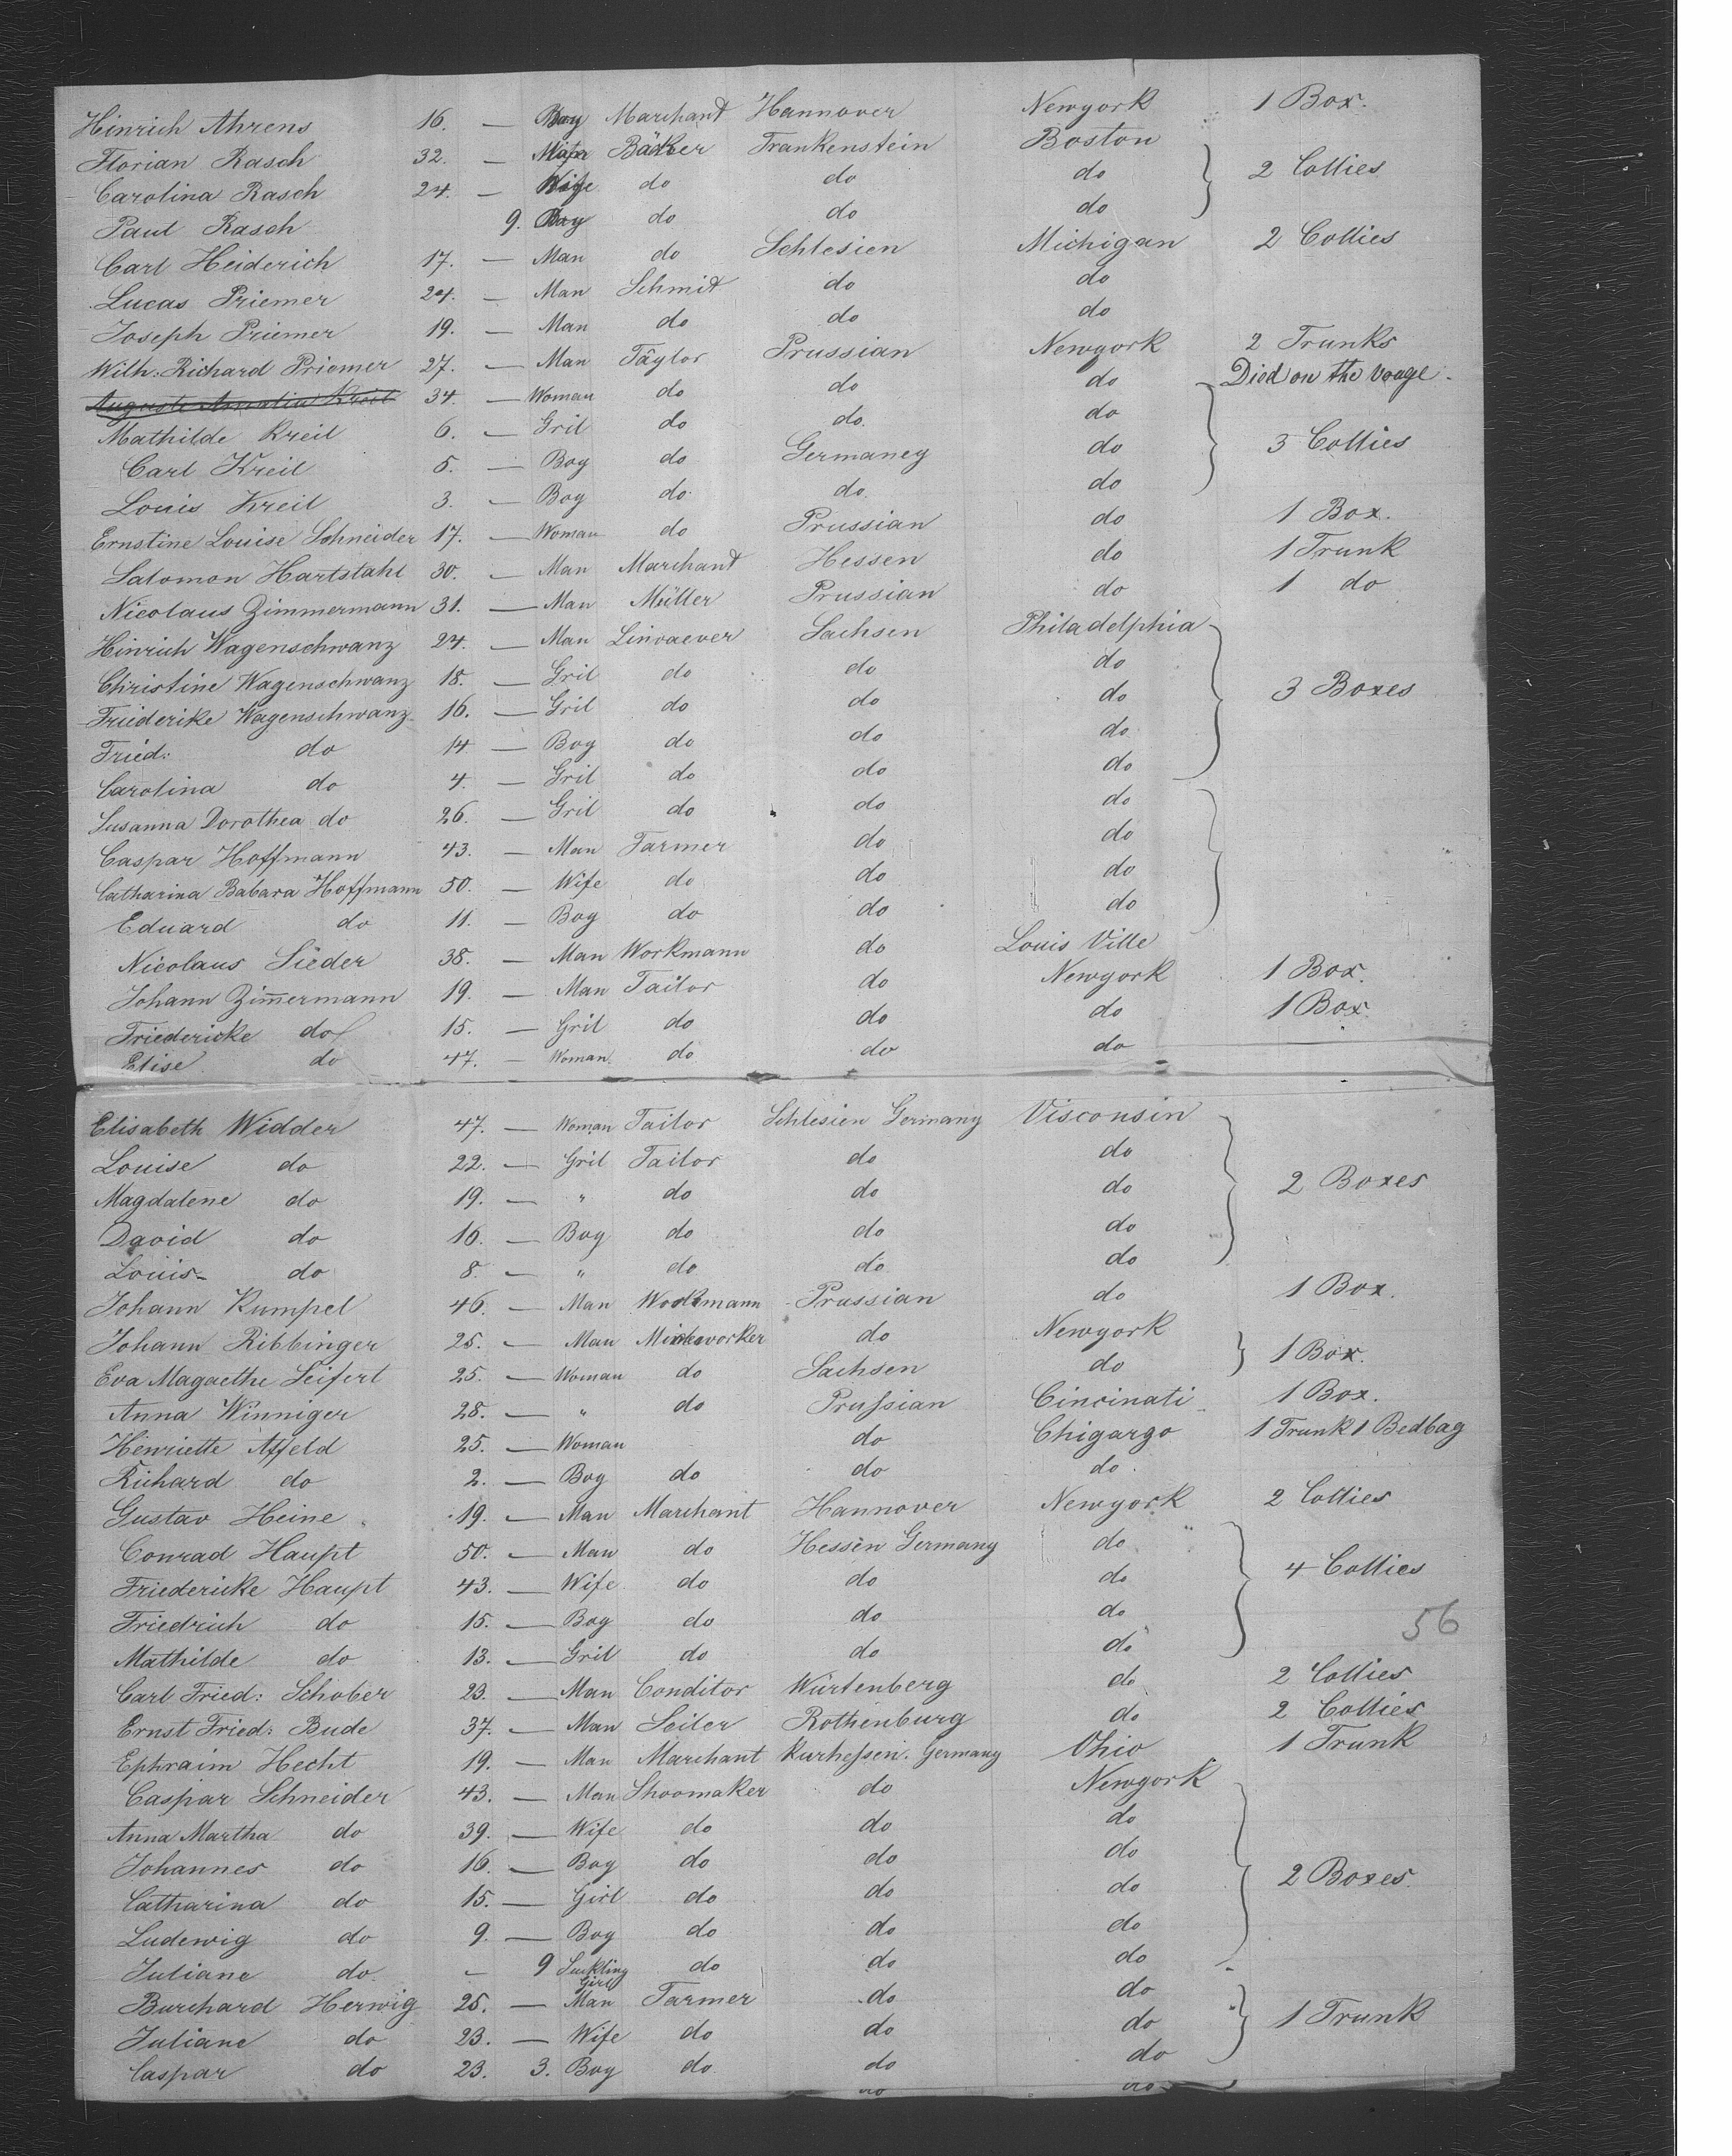 Hinrich Ahrens 16. — Boy Marchant Hannover Newyork 1 Box.
Florian Rasch 32. — Man Bäker Frankenstein Boston
Carolina Rasch 24. — Wife do do do 2 Collies
Paul Rasch 9. Boy do do do
Carl Heiderich 17. — Man do Schlesien Michigan 2 Collies
Lucas Priemer 24. — Man Schmid do do
Joseph Priemer 19. — Man do do do
Wilh: Richard Priemer 27. — Man Täylor Prussian Newyork 2 Trunks
Auguste Amalia Kreil 34. — Woman do do do Died on the voage.
Mathilde Kreil 6. — Gril do do. do
Carl Kreil 5. — Boy do Germaney do 3 Collies
Louis Kreil 3. — Boy do do. do
Ernstine Louise Schneider 17. — Woman do Prussian do 1 Box.
Salomon Hartstahl 30. — Man Marchant Hessen do 1 Trunk
Nicolaus Zimmermann 31. — Man Müller Prussian do 1 do
Hinrich Wagenschwanz 24. — Man Linvaever Sachsen Philadelphia
Christine Wagenschwanz 18. — Gril do do do
Friederike Wagenschwanz 16. — Gril do do do 3 Boxes
Fried: do 14 — Boy do do do
Carolina do 4. — Gril do do do
Susanna Dorothea do 26. — Gril do do do
Caspar Hoffmann 43. — Man Farmer do do
Catharina Babara Hoffmann 50. — Wife do do do
Eduard do 11. — Boy do do do
Nicolaus Sieder 38. — Man Workmann do Louis Ville
Johann Zimmermann 19. — Man Tailor do Newyork 1 Box.
Friedericke do 15. — Gril do do do 1 Box
Elise do 47. — Woman do do do
Elisabeth Widder 47. — Woman Tailor Schlesien Germany Visconsin
Louise do 22. — Gril Tailor do do
Magdalene do 19. — " do do do 2 Boxes
David do 16. — Boy do do do
Louis do 8. — " do do do
Johann Kumpel 46. — Man Workmann Prussian do 1 Box.
Johann Ribbinger 25. — Man Mineworker do Newyork
Eva Magaethe Seifert 25. — Woman do Sachsen do 1 Box.
Anna Winniger 28. — " do Prussian Cincinati 1 Box.
Henriette Affeld 25. — Woman do Chigargo 1 Trunk 1 Bedbag
Richard do 2. — Boy do do do
Gustav Heine 19. — Man Marchant Hannover Newyork 2 Collies
Conrad Haupt 50. — Man do Hessen Germany do
Friedericke Haupt 43. — Wife do do do 4 Collies
Friedrich do 15. — Boy do do do
56
Mathilde do 13. — Gril do do do
Carl Fried: Schober 23. — Man Conditor Würtenberg do 2 Collies
Ernst Fried: Bude 37. — Man Seiler Rothenburg do 2 Collies
Ephraim Hecht 19. — Man Marchant Kurhessen. Germany Ohio 1 Trunk
Caspar Schneider 43. — Man Shoomaker do Newyork
Anna Martha do 39. — Wife do do do
Johannes do 16. — Boy do do do
Catharina do 15. — Girl do do do 2 Boxes
Ludewig do 9. — Boy do do do
Juliane do. — 9 Suckling Girl do do do
Burchard Herwig 25. — Man Farmer do do
Juliane do 23. — Wife do do do 1 Trunk
Caspar do 23. 3. Boy do do do
do do